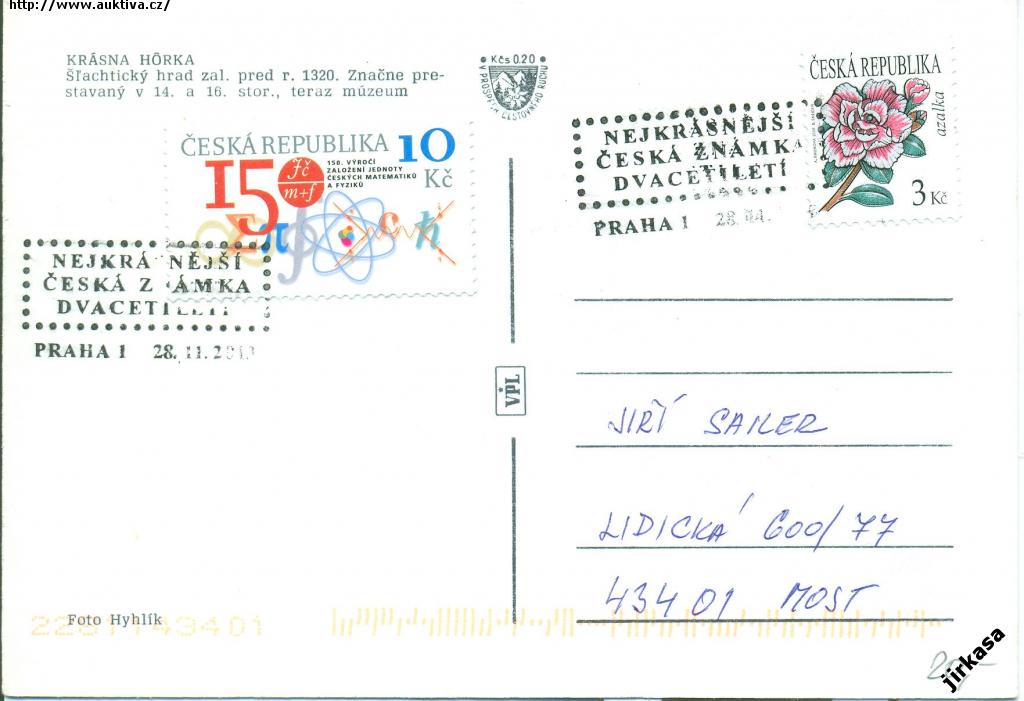 http://www.auktiva.cz/
KRÁSNA HÔRKA
Šľachtický hrad zal. pred r. 1320. Značne pre-
stavaný v 14. a 16. stor., teraz múzeum
Kčs 0.20
V PROSPECH CESTOVNÉHO RUCHU
ČESKÁ REPUBLIKA 10 Kč
150
jč
m+f
150. VÝROČÍ
ZALOŽENÍ JEDNOTY
ČESKÝCH MATEMATIKŮ
A FYZIKŮ
NEJKRÁ NĚJŠÍ
ČESKÁ Z ÁMKA
DVACETILETÍ
PRAHA 1 28.11.2013
ČESKÁ REPUBLIKA
azalka
3 Kč
NEJKRÁSNĚJŠÍ
ČESKÁ ZNÁMKA
DVACETILETÍ
PRAHA 1 28.
VPL
JIŘÍ SAILER
LIDICKÁ 600/77
434 01 MOST
Foto Hyhlík
43401
jirkasa